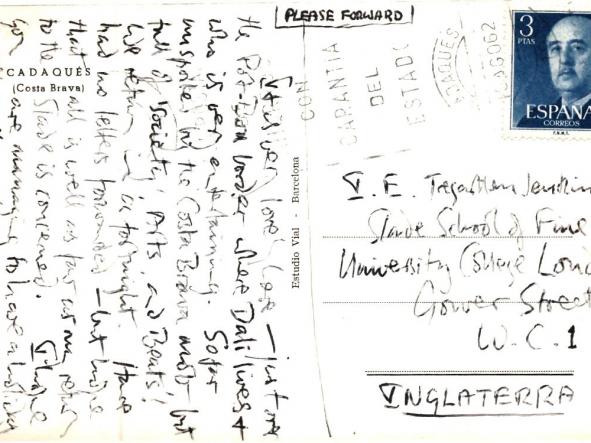 PLEASE FORWARD
CADAQUÉS
(Costa Brava)
It is very lovely here — just over
the border where Dali lives &
who is very entertaining. So far
unspoiled by the Costa Brava mob — but
full of 'society', Arts and Beats!
We return in a fortnight. Have
had no letters forwarded — but hope
that all is well as far as my return
to the Slade is concerned. I hope
you are managing to have a holiday
Estudio Vial - Barcelona
CON
GARANTIA
DEL
ESTADO
CADAQUÉS
AGO 62
3
PTAS
ESPAÑA
CORREOS
F.N.M.T.
E. Tregarthen Jenkin
Slade School of Fine
University College Lond
Gower Street
W.C.1
INGLATERRA